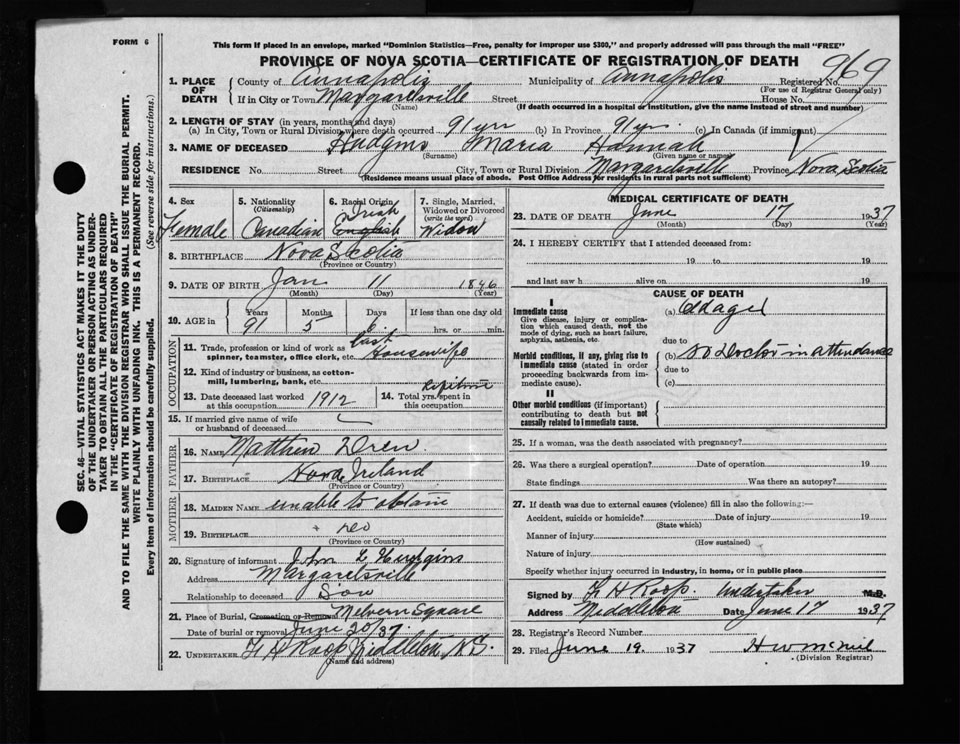 FORM 6
This form if placed in an envelope, marked "Dominion Statistics—Free, penalty for improper use $300," and properly addressed will pass through the mail "FREE"
PROVINCE OF NOVA SCOTIA—CERTIFICATE OF REGISTRATION OF DEATH
1. PLACE OF DEATH
County of Annapolis Municipality of Annapolis Registered No. 969
(For use of Registrar General only)
If in City or Town Margaretsville Street House No.
(Name) (If death occurred in a hospital or institution, give the name instead of street and number)
2. LENGTH OF STAY (in years, months and days)
(a) In City, Town or Rural Division where death occurred 91 yrs (b) In Province 91 yrs. (c) In Canada (if immigrant)
3. NAME OF DECEASED Hudgins Maria Hannah
(Surname) (Given name or names)
RESIDENCE No. Street City, Town or Rural Division Margaretsville Province Nova Scotia
(Residence means usual place of abode. Post Office Address for residents in rural parts not sufficient)
4. Sex
Female
5. Nationality
(Citizenship)
Canadian
6. Racial Origin
Irish
English
7. Single, Married, Widowed or Divorced
(write the word)
Widow
8. BIRTHPLACE Nova Scotia
(Province or Country)
9. DATE OF BIRTH Jan 11 1846
(Month) (Day) (Year)
10. AGE in
Years Months Days If less than one day old
91 5 6 hrs. or min.
OCCUPATION
11. Trade, profession or kind of work as spinner, teamster, office clerk, etc. Housewife
12. Kind of industry or business, as cotton-mill, lumbering, bank, etc.
13. Date deceased last worked at this occupation 1912
14. Total yrs. spent in this occupation
15. If married give name of wife or husband of deceased
FATHER
16. NAME Matthew
17. BIRTHPLACE Ireland
(Province or Country)
MOTHER
18. MAIDEN NAME unable to obtain
19. BIRTHPLACE
(Province or Country)
20. Signature of informant John L Hudgins
Address Margaretsville
Relationship to deceased Son
21. Place of Burial, Cremation or Removal Melvern Square
Date of burial or removal June 20/37.
22. UNDERTAKER F H Roop Middleton, N.S.
(Name and address)
MEDICAL CERTIFICATE OF DEATH
23. DATE OF DEATH June 17 1937
(Month) (Day) (Year)
24. I HEREBY CERTIFY that I attended deceased from:
19 to 19
and last saw h alive on 19
CAUSE OF DEATH
I
Immediate cause
Give disease, injury or complication which caused death, not the mode of dying, such as heart failure, asphyxia, asthenia, etc.
(a) Old age
due to
Morbid conditions, if any, giving rise to immediate cause (stated in order proceeding backwards from immediate cause).
(b) no Doctor in attendance
due to
(c)
II
Other morbid conditions (if important) contributing to death but not causally related to immediate cause.
25. If a woman, was the death associated with pregnancy?
26. Was there a surgical operation? Date of operation 19
State findings Was there an autopsy?
27. If death was due to external causes (violence) fill in also the following:—
Accident, suicide or homicide? Date of injury 19
(State which)
Manner of injury
(How sustained)
Nature of injury
Specify whether injury occurred in industry, in home, or in public place
Signed by F H Roop Undertaker M.D.
Address Middleton Date June 17 1937
28. Registrar's Record Number
29. Filed June 19. 1937 H W McNeil
(Division Registrar)
SEC. 46—VITAL STATISTICS ACT MAKES IT THE DUTY
OF THE UNDERTAKER OR PERSON ACTING AS UNDER-
TAKER TO OBTAIN ALL THE PARTICULARS REQUIRED
IN THE "CERTIFICATE OF REGISTRATION OF DEATH"
AND TO FILE THE SAME WITH THE DIVISION REGISTRAR WHO SHALL ISSUE THE BURIAL PERMIT.
WRITE PLAINLY WITH UNFADING INK. THIS IS A PERMANENT RECORD.
Every item of information should be carefully supplied. (See reverse side for instructions.)